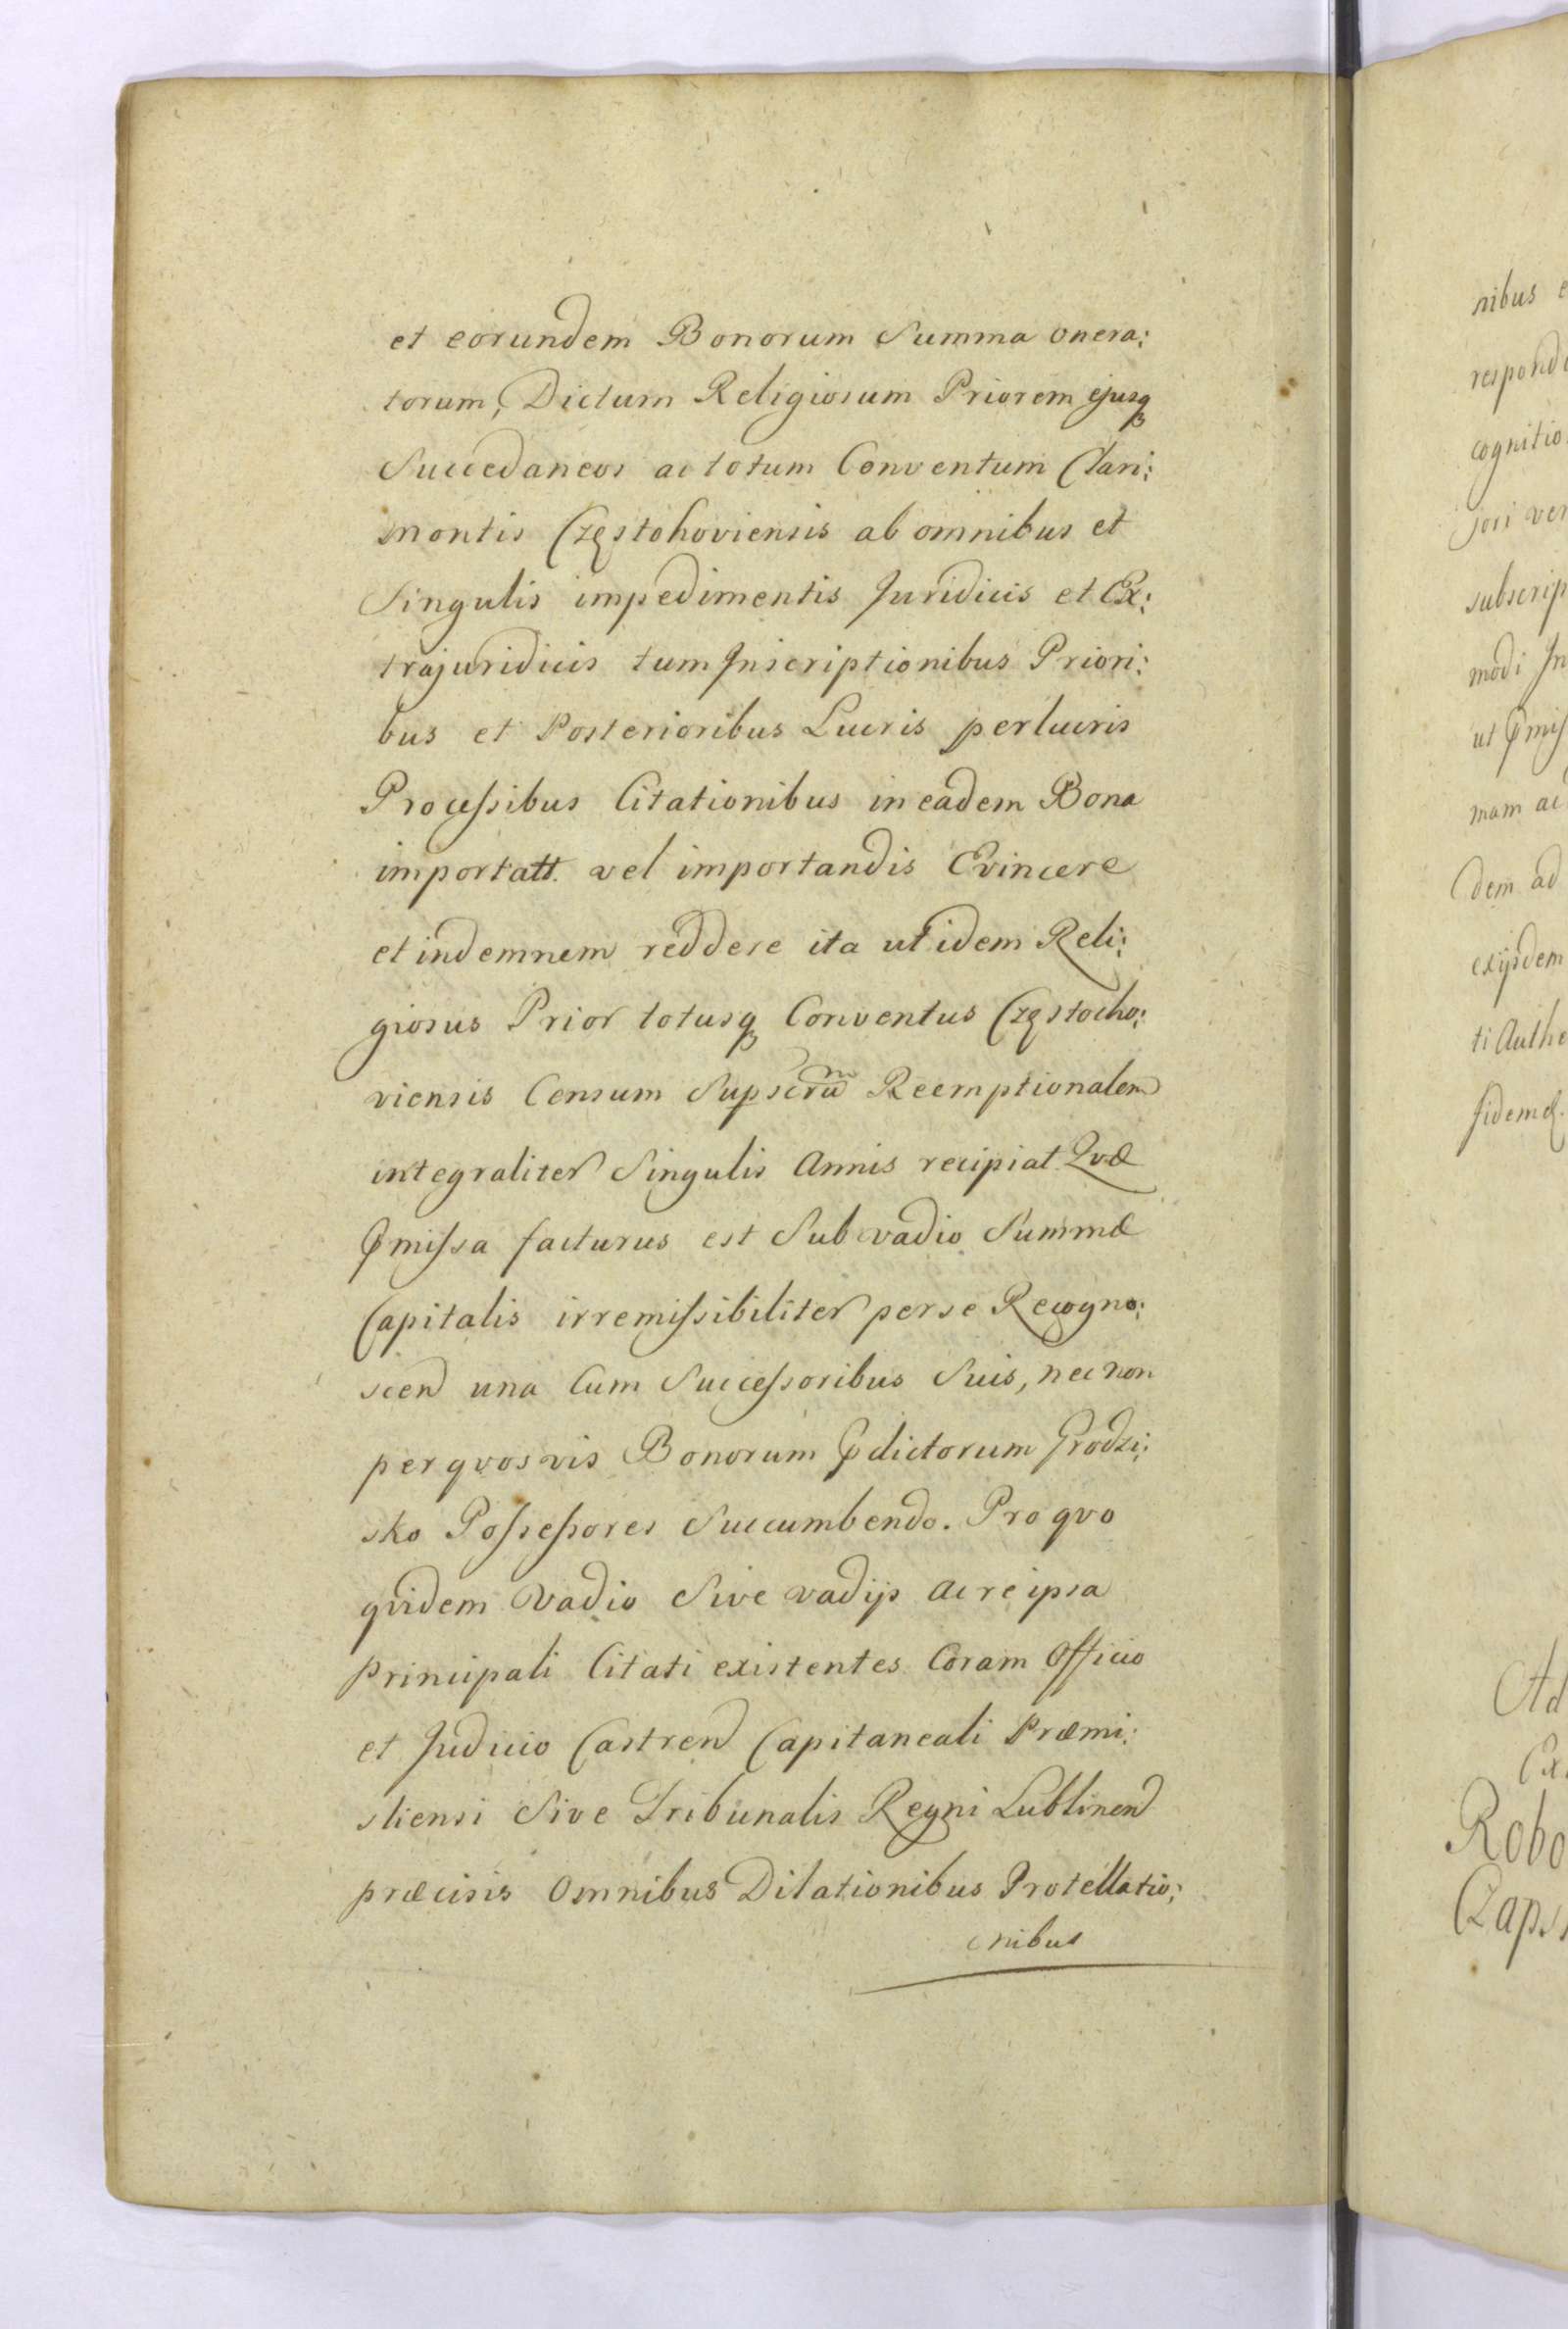 et eorundem Bonorum Summa onera:
torum, Dictum Religiosum Priorem ejusq
Succedaneos ac totum Conventum Clari:
montis Częstohoviensis ab omnibus et
Singulis impedimentis Juridicis et Ex:
trajuridicis tum Inscriptionibus Priori:
bus et Posterioribus Lucris perlucris
Processibus Citationibus in eadem Bona
importatt. vel importandis Evincere
et indemnem reddere ita ut idem Reli:
giosus Prior totusq Conventus Częstocho:
viensis Censum Supscrũm Reemptionalem
integraliter Singulis Annis recipiat Qvæ
Pmissa facturus est Sub vadio Summæ
Capitalis irremissibiliter per se Recogno:
scen una Cum Successoribus Suis, nec non
per qvosvis Bonorum Pdictorum Grodzi:
sko Possessores Succumbendo. Pro qvo
qvidem Vadio Sive vadijs ac re ipsa
Principali Citati existentes Coram Officio
et Judicio Castren Capitaneali Præmi:
sliensi Sive Tribunalis Regni Lublinen
præcisis Omnibus Dilationibus Protellatio:
nibus
nibus
cognitio
subscrip
modi In
mam ac
dem ad
exijsdem
ti Authe
Ad
Robo